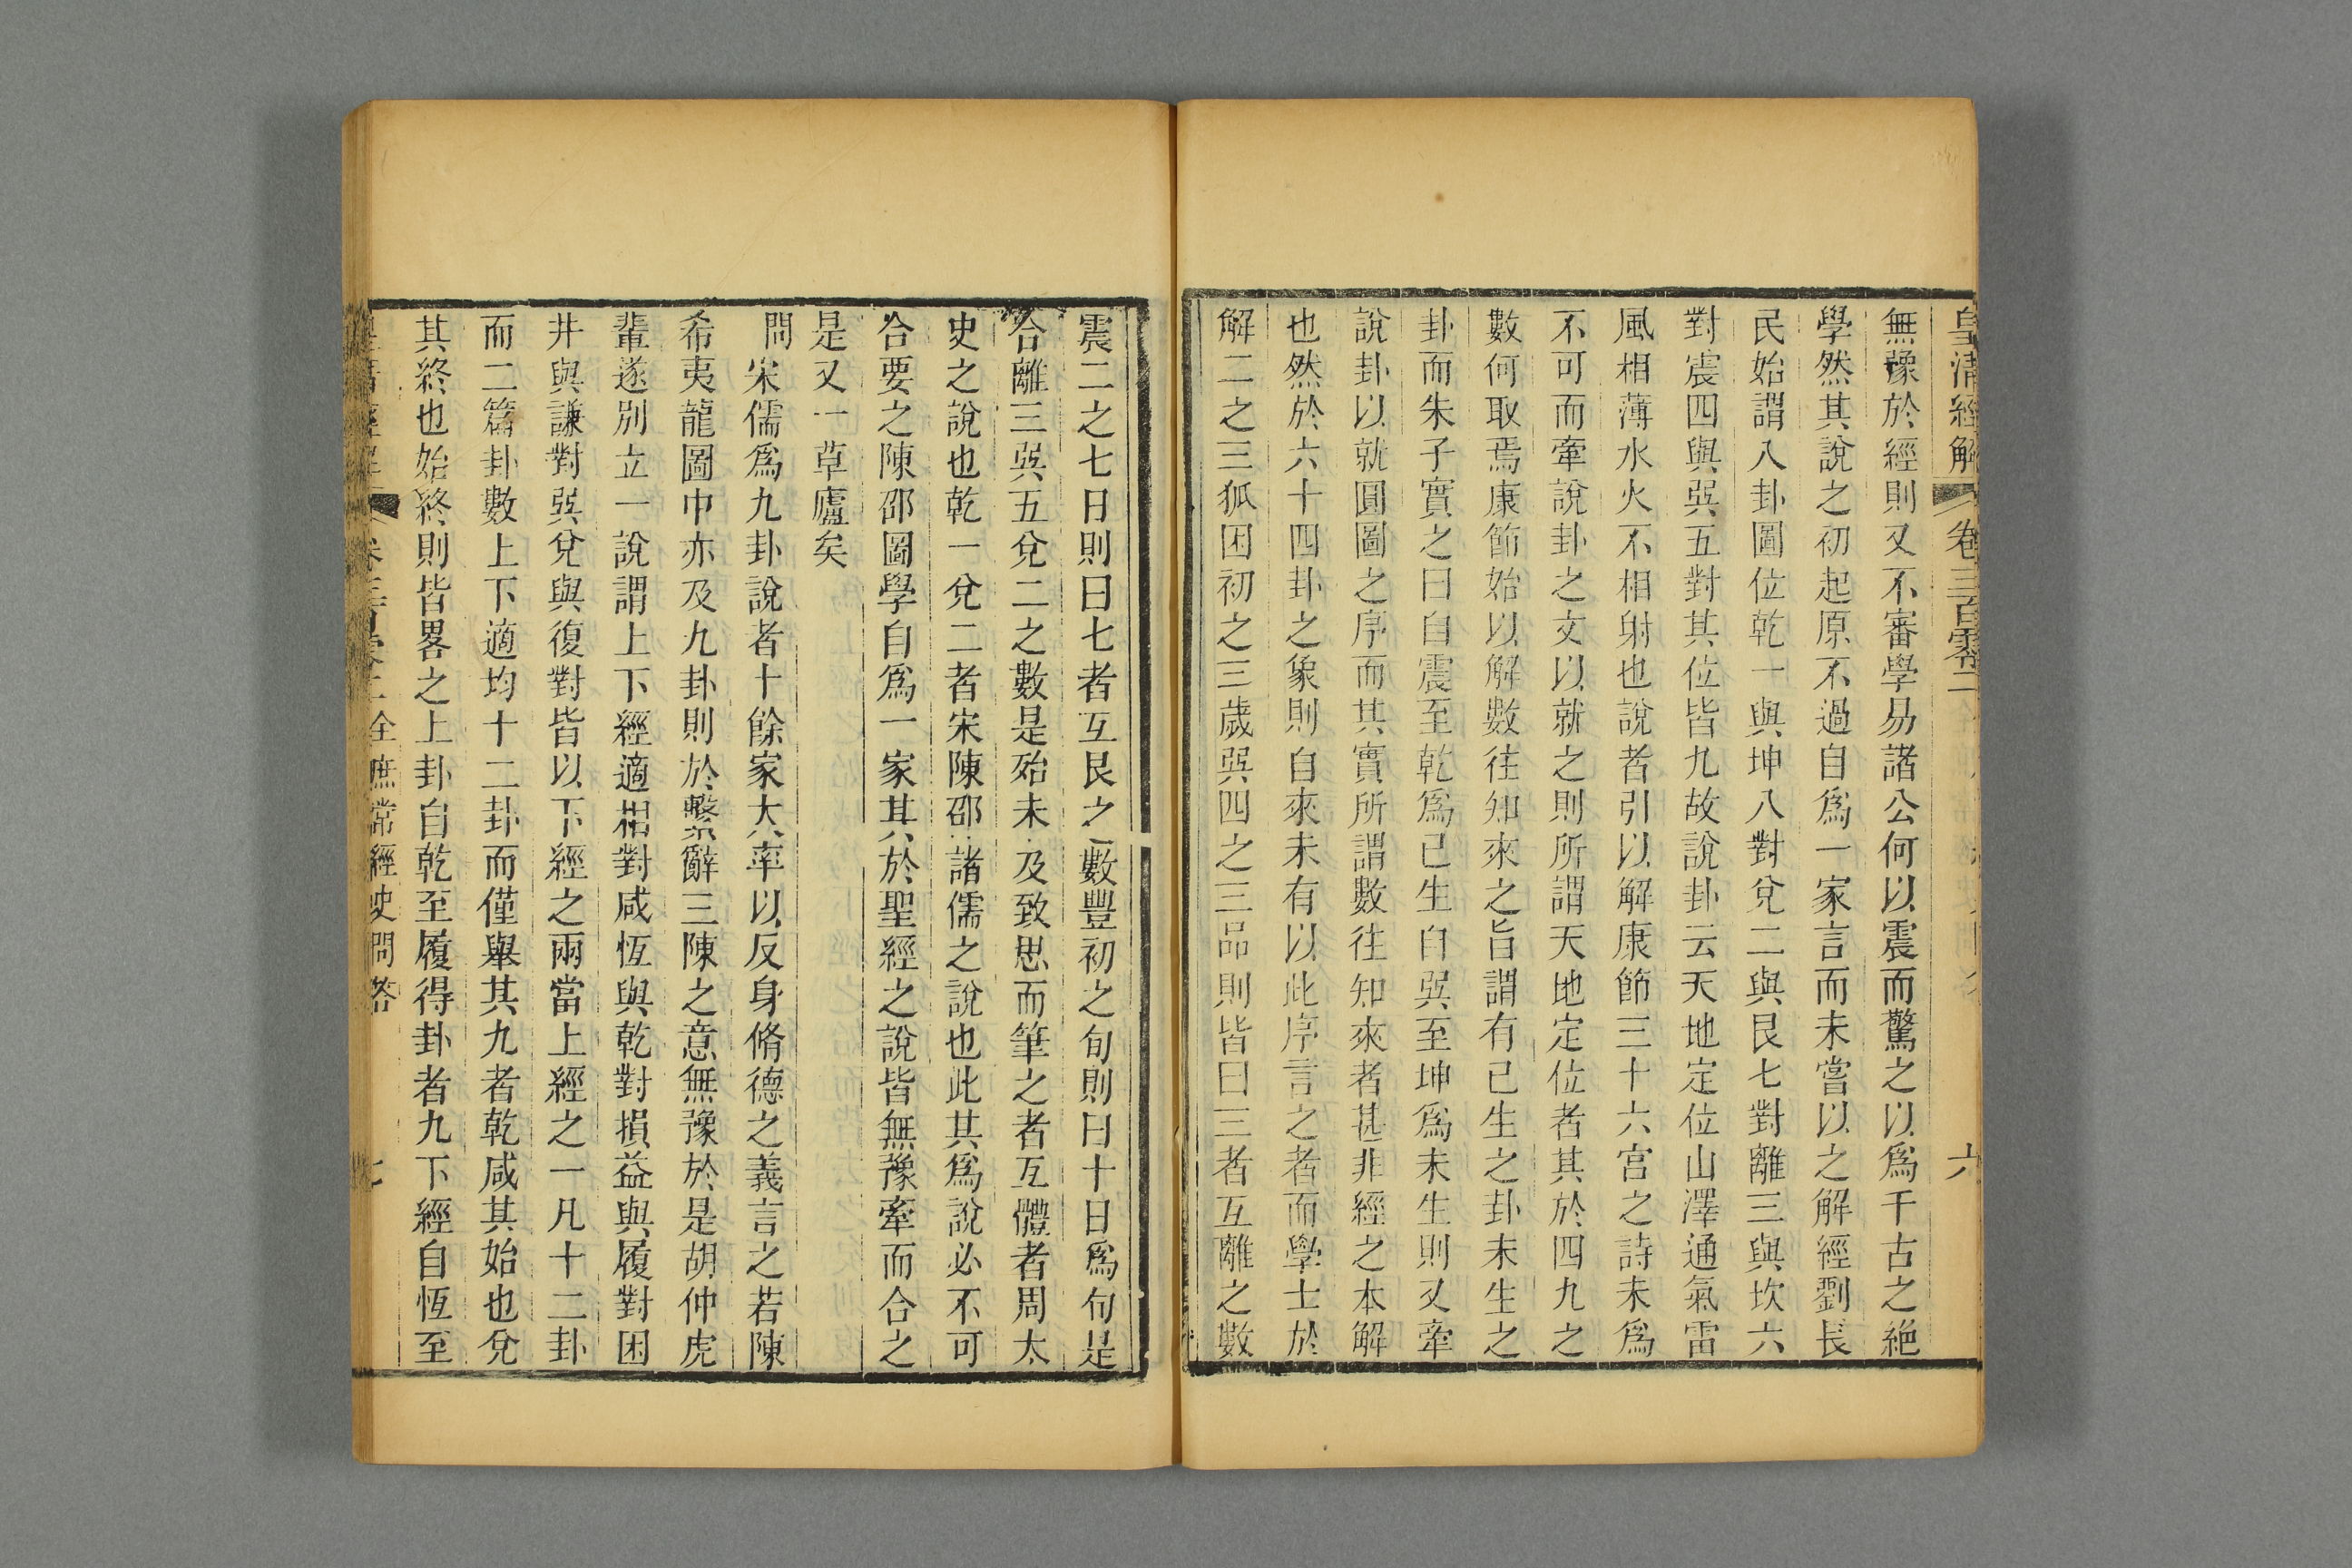 皇清經解 卷三百零二 六
無豫於經則又不審學易諸公何以震而驚之以爲千古之絶
學然其說之初起原不過自爲一家言而未嘗以之解經劉長
民始謂八卦圖位乾一與坤八對兌二與艮七對離三與坎六
對震四與巽五對其位皆九故說卦云天地定位山澤通氣雷
風相薄水火不相射也說者引以解康節三十六宮之詩未爲
不可而牽說卦之文以就之則所謂天地定位者其於四九之
數何取焉康節始以解數往知來之旨謂有已生之卦未生之
卦而朱子實之曰自震至乾爲已生自巽至坤爲未生則又牽
說卦以就圓圖之序而其實所謂數往知來者甚非經之本解
也然於六十四卦之象則自來未有以此序言之者而學士於
解二之三狐困初之三歲巽四之三品則皆曰三者互離之數
震二之七日則曰七者互艮之數豐初之旬則曰十日爲旬是
合離三巽五兌二之數是殆未及致思而筆之者互體者周太
史之說也乾一兌二者宋陳邵諸儒之說也此其爲說必不可
合要之陳邵圖學自爲一家其於聖經之說皆無豫牽而合之
是又一草廬矣
問宋儒爲九卦說者十餘家大率以反身脩德之義言之若陳
希夷龍圖中亦及九卦則於繫辭三陳之意無豫於是胡仲虎
輩遂別立一說謂上下經適相對咸恆與乾對損益與履對困
井與謙對巽兌與復對皆以下經之兩當上經之一凡十二卦
而二篇卦數上下適均十二卦而僅舉其九者乾咸其始也兌
其終也始終則皆畧之上卦自乾至履得卦者九下經自恆至
全庶常經史問答 七